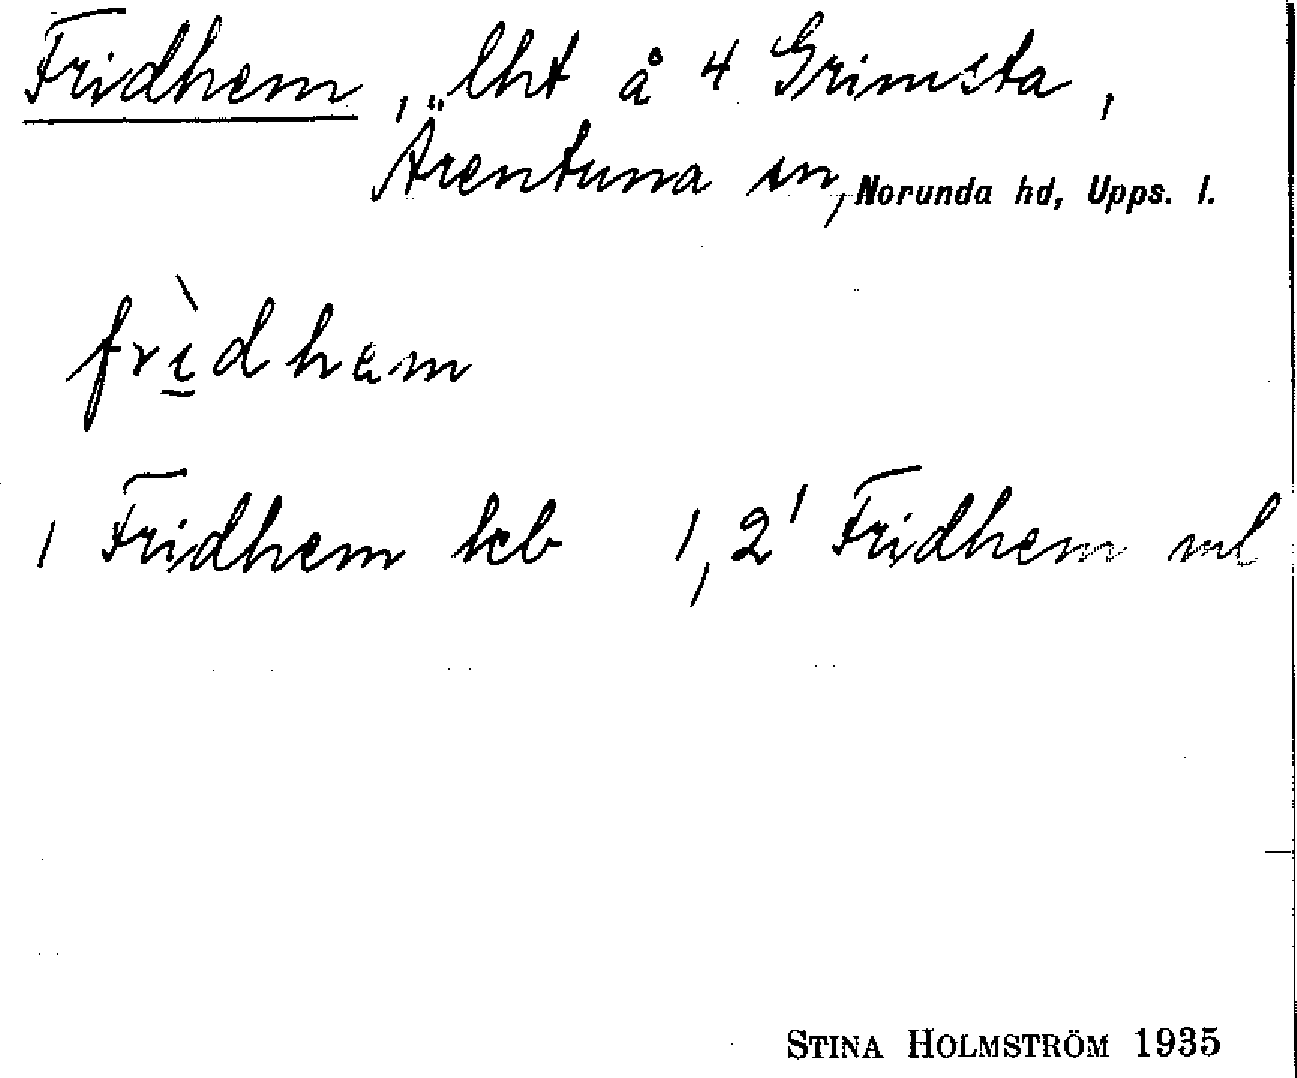 Fridhem, lht å 4 Grimsta,
Ärentuna sn, Norunda hd, Upps. l.
frìdhem
1 Fridhem keb 1, 2¹ Fridhem ml
STINA HOLMSTRÖM 1935